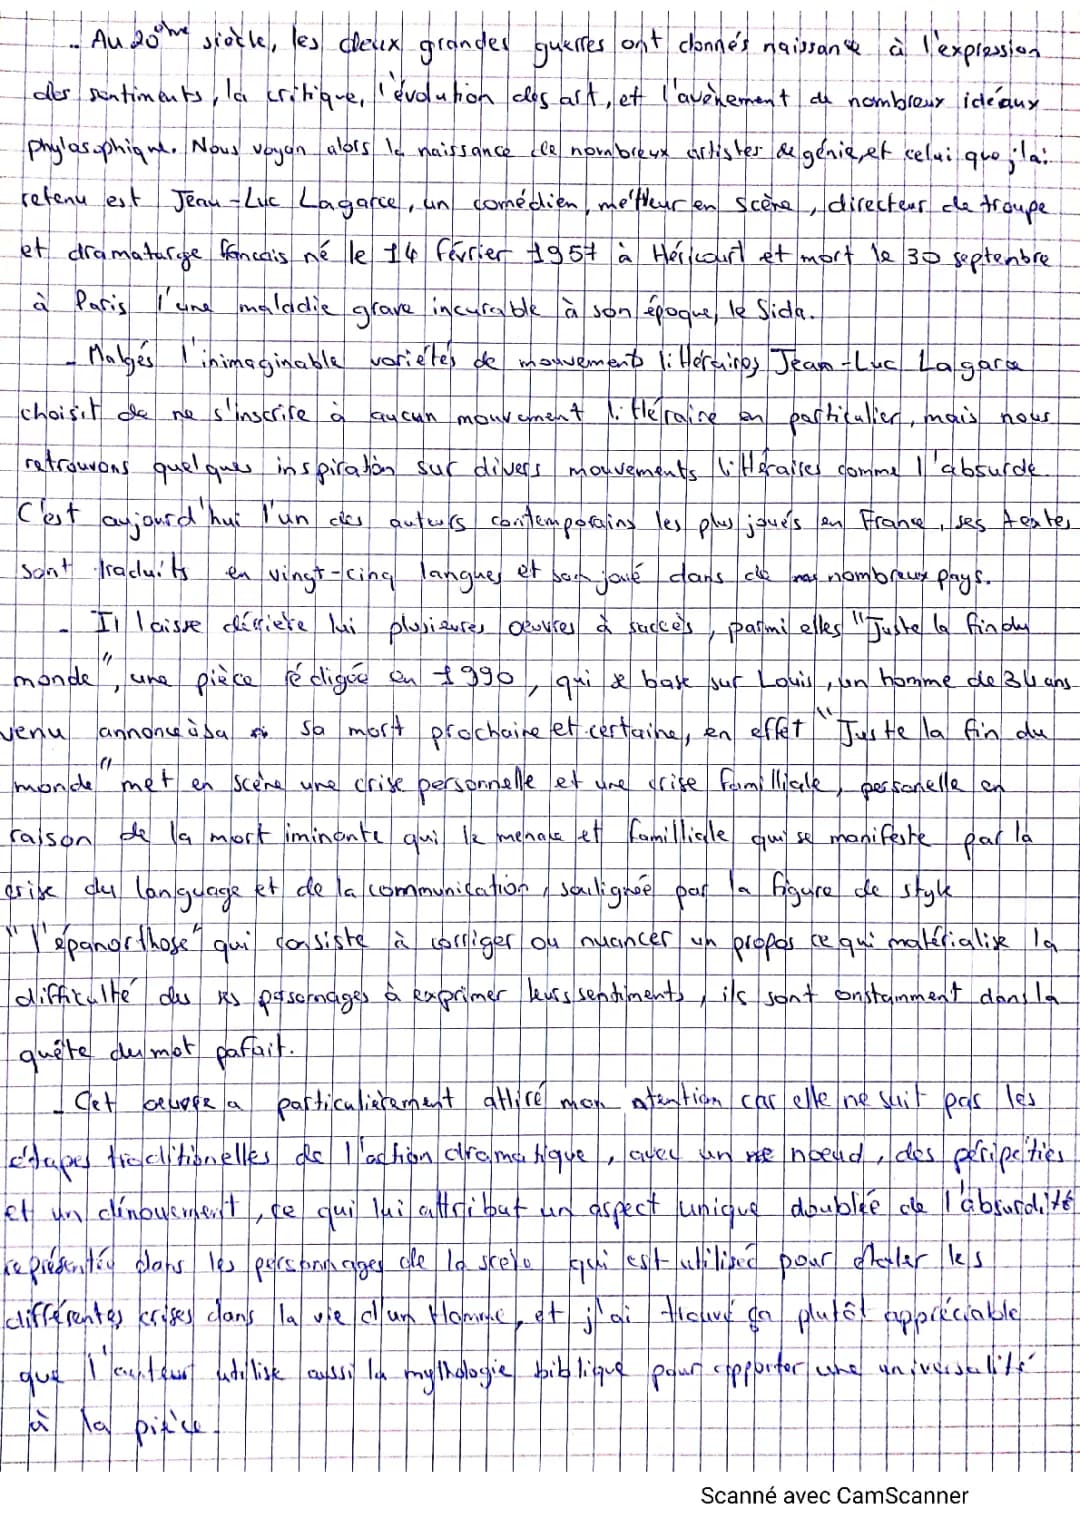 - Au 20ème siècle, les deux grandes guerres ont donnés naissance à l'expression
des sentiments, la critique, l'évolution des art, et l'avènement de nombreux idéaux
phylosophique. Nous voyon alors la naissance de nombreux artistes de génie, et celui que j'ai
retenu est Jean-Luc Lagarce, un comédien, metteur en scène, directeur de troupe
et dramaturge francais né le 14 février 1957 à Héricourt et mort le 30 septenbre
à Paris d'une maladie grave incurable à son époque, le Sida.
- Malgés l'inimaginable variétés de mouvement littéraires Jean-Luc Lagarce
choisit de ne s'inscrire à aucun mouvement littéraire en particulier, mais nous
retrouvons quelques inspiration sur divers mouvements littéraires comme l'absurde.
C'est aujourd'hui l'un des auteurs contemporains les plus joués en France, ses textes
sont traduits en vingt-cinq langues et son joué dans de nombreux pays.
- Il laisse dérriere lui plusieures oeuvres à succès, parmi elles "Juste la fin du
monde", une pièce rédigée en 1990, qui se base sur Louis, un homme de 34 ans
venu annonce à sa sa mort prochaine et certaine, en effet "Juste la fin du
monde" met en scène une crise personnelle et une crise familliale, personelle en
raison de la mort iminante qui le menace et familliale qui se manifeste par la
crise du language et de la communication, soulignée par la figure de style
"l'épanorthose" qui consiste à corriger ou nuancer un propos ce qui matérialise la
difficulté des personnages à exprimer leurs sentiments, ils sont constamment dans la
quête du mot parfait.
- Cet oeuvre a particulièrement attiré mon atention car elle ne suit pas les
étapes traditionelles de l'action dramatique, avec un noeud, des péripeties
et un dénouement, ce qui lui attribut un aspect unique doublée de l'absurdité
représentée dans les personnages de la scene qui est utilisé pour étaler les
différentes crises dans la vie d'un Homme, et j'ai trouvé ça plutôt appréciable
que l'auteur utilise aussi la mythologie biblique pour apporter une universalité
à la pièce.
Scanné avec CamScanner